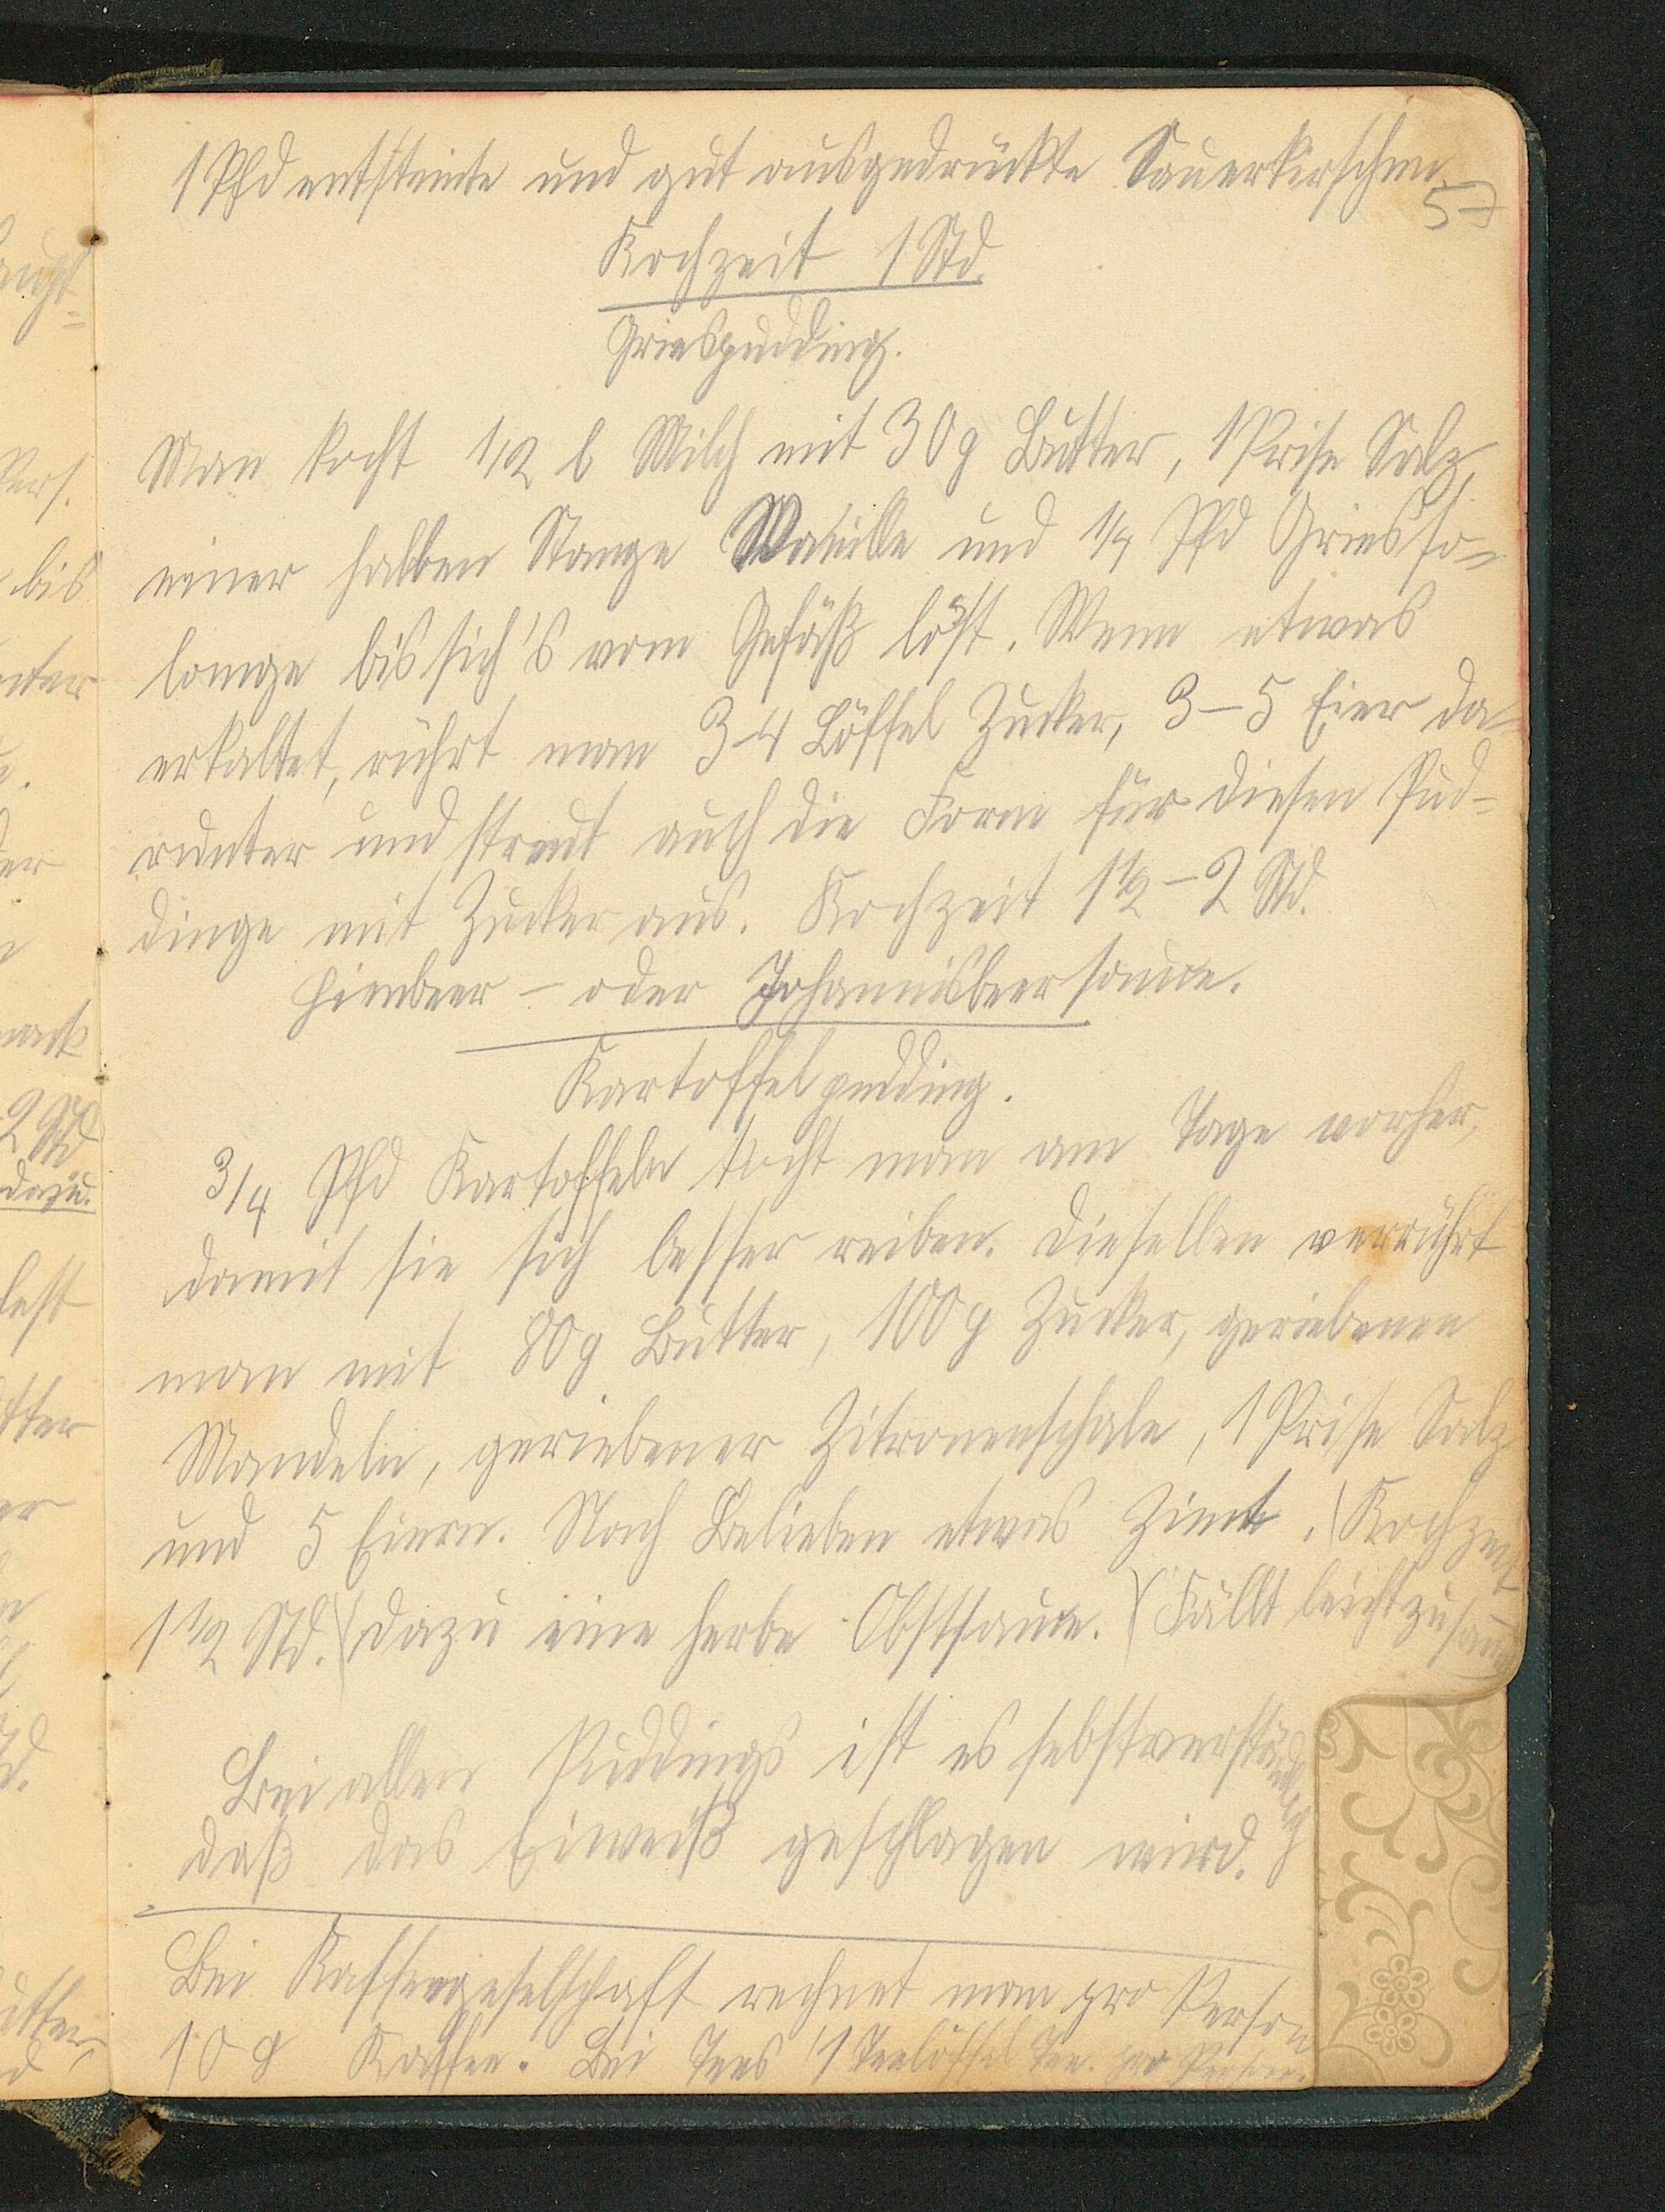 1 Pfd entsteinte und gut ausgedrückte Sauerkirschen.
57
Kochzeit 1 Std.
Griespudding.
Man kocht 1/2 l Milch mit 30 g Butter, 1 Prise Salz,
einer halben Stange Vanille und 1/4 Pfd Gries so=
lange bis sich's vom Gefäß löst. Wenn etwas
erkaltet, rührt man 3-4 Löffel Zucker, 3-5 Eier da
runter und streut auch die Form für diesen Pud-
dinge mit Zucker aus. Kochzeit 1 1/2 - 2 Std.
Himbeer - oder Johannisbeersauce.
Kartoffelpudding.
3/4 Pfd Kartoffeln kocht man am Tage vorher,
damit sie sich besser reiben. Dieselben verrührt
man mit 80 g Butter, 100 g Zucker, geriebenen
Mandeln, geriebener Zitronenschale, 1 Prise Salz
und 5 Eiern. Nach Belieben etwas Zimt. Kochzeit
1 1/2 Std. Dazu eine herbe Obstsauce. Fällt leicht zusamm
Bei allen Puddings ist es selbstverständlich
daß das Eiweiß geschlagen wird.
Bei Kaffeegesellschaft rechnet man pro Person
10 g Kaffee. Bei Tees 1 Teelöffel Tee. pro Person.
aupt=
Pers.
bis
unter
der
2 Std
dazu.
läßt
utter
er
Std.
utter,